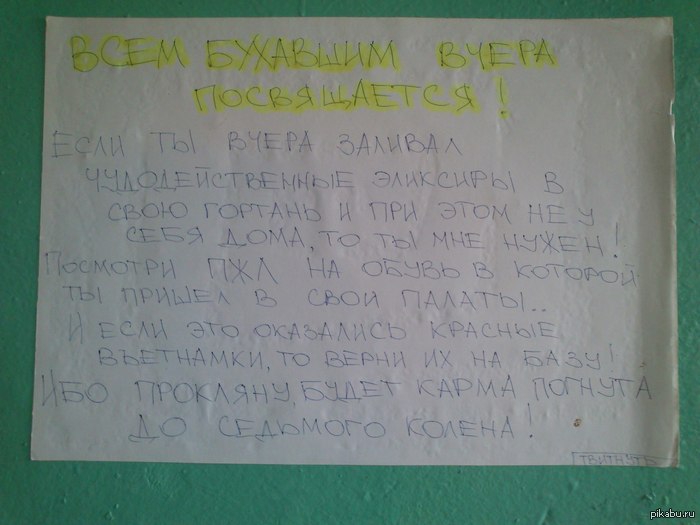 ВСЕМ БУХАВШИМ ВЧЕРА
ПОСВЯЩАЕТСЯ!
ЕСЛИ ТЫ ВЧЕРА ЗАЛИВАЛ
ЧУДОДЕЙСТВЕННЫЕ ЭЛИКСИРЫ В
СВОЮ ГОРТАНЬ И ПРИ ЭТОМ НЕ У
СЕБЯ ДОМА, ТО ТЫ МНЕ НУЖЕН!
ПОСМОТРИ ПЖЛ НА ОБУВЬ В КОТОРОЙ
ТЫ ПРИШЕЛ В СВОИ ПАЛАТЫ..
И ЕСЛИ ЭТО ОКАЗАЛИСЬ КРАСНЫЕ
ВЪЕТНАМКИ, ТО ВЕРНИ ИХ НА БАЗУ!
ИБО ПРОКЛЯНУ, БУДЕТ КАРМА ПОГНУТА
ДО СЕДЬМОГО КОЛЕНА!
ТВИТНУТЬ
pikabu.ru